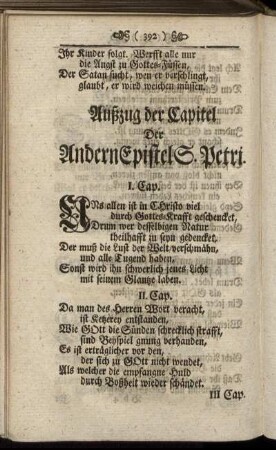 ( 392 )
Ihr Kinder folgt. Werfft alle nur
die Angst zu Gottes-Füssen,
Der Satan sucht, wen er verschlingt,
glaubt, er wird weichen müssen.
Außzug der Capitel
Der
Andern Epistel S. Petri.
I. Cap.
UNs allen ist in CHristo viel
durch Gottes-Krafft geschencket,
Drum wer desselbigen Natur
theilhafft zu seyn gedencket,
Der muß die Lust der Welt verschmähn,
und alle Tugend haben,
Sonst wird ihn schwerlich jenes Licht
mit seinem Glantze laben.
II. Cap.
Da man des Herren Wort veracht,
ist Ketzerey entstanden,
Wie GOtt die Sünden schrecklich strafft,
sind Beyspiel gnung verhanden,
Es ist erträglicher vor den,
der sich zu GOtt nicht wendet,
Als welcher die empfangne Huld
durch Boßheit wieder schändet.
III Cap.